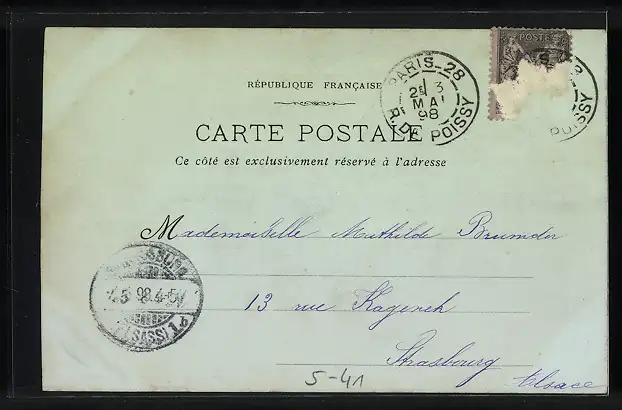 POSTE
PARIS_28
2E 3
MAI
98
R. DE POISSY
POISSY
RÉPUBLIQUE FRANÇAISE
CARTE POSTALE
Ce côté est exclusivement réservé à l'adresse
Mademoiselle Mathilde Brumder
13 rue Kageneck
Strasbourg
Alsace
98.4-5
(ELSASS) 1
5-41